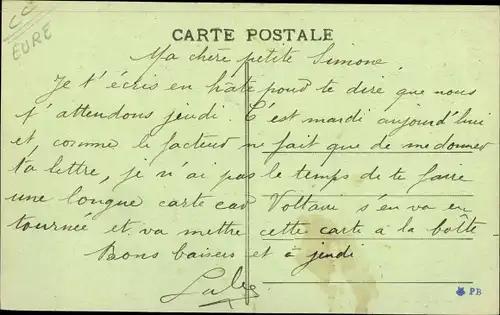 CC
EURE
CARTE POSTALE
Ma chère petite Simone,
Je t'écris en hâte pour te dire que nous
t'attendons jeudi. C'est mardi aujourd'hui
et, comme le facteur ne fait que de me donner
ta lettre, je n'ai pas le temps de te faire
une longue carte car Voltaire s'en va en
tournée et va mettre cette carte à la boîte.
Bons baisers et à jeudi
PB